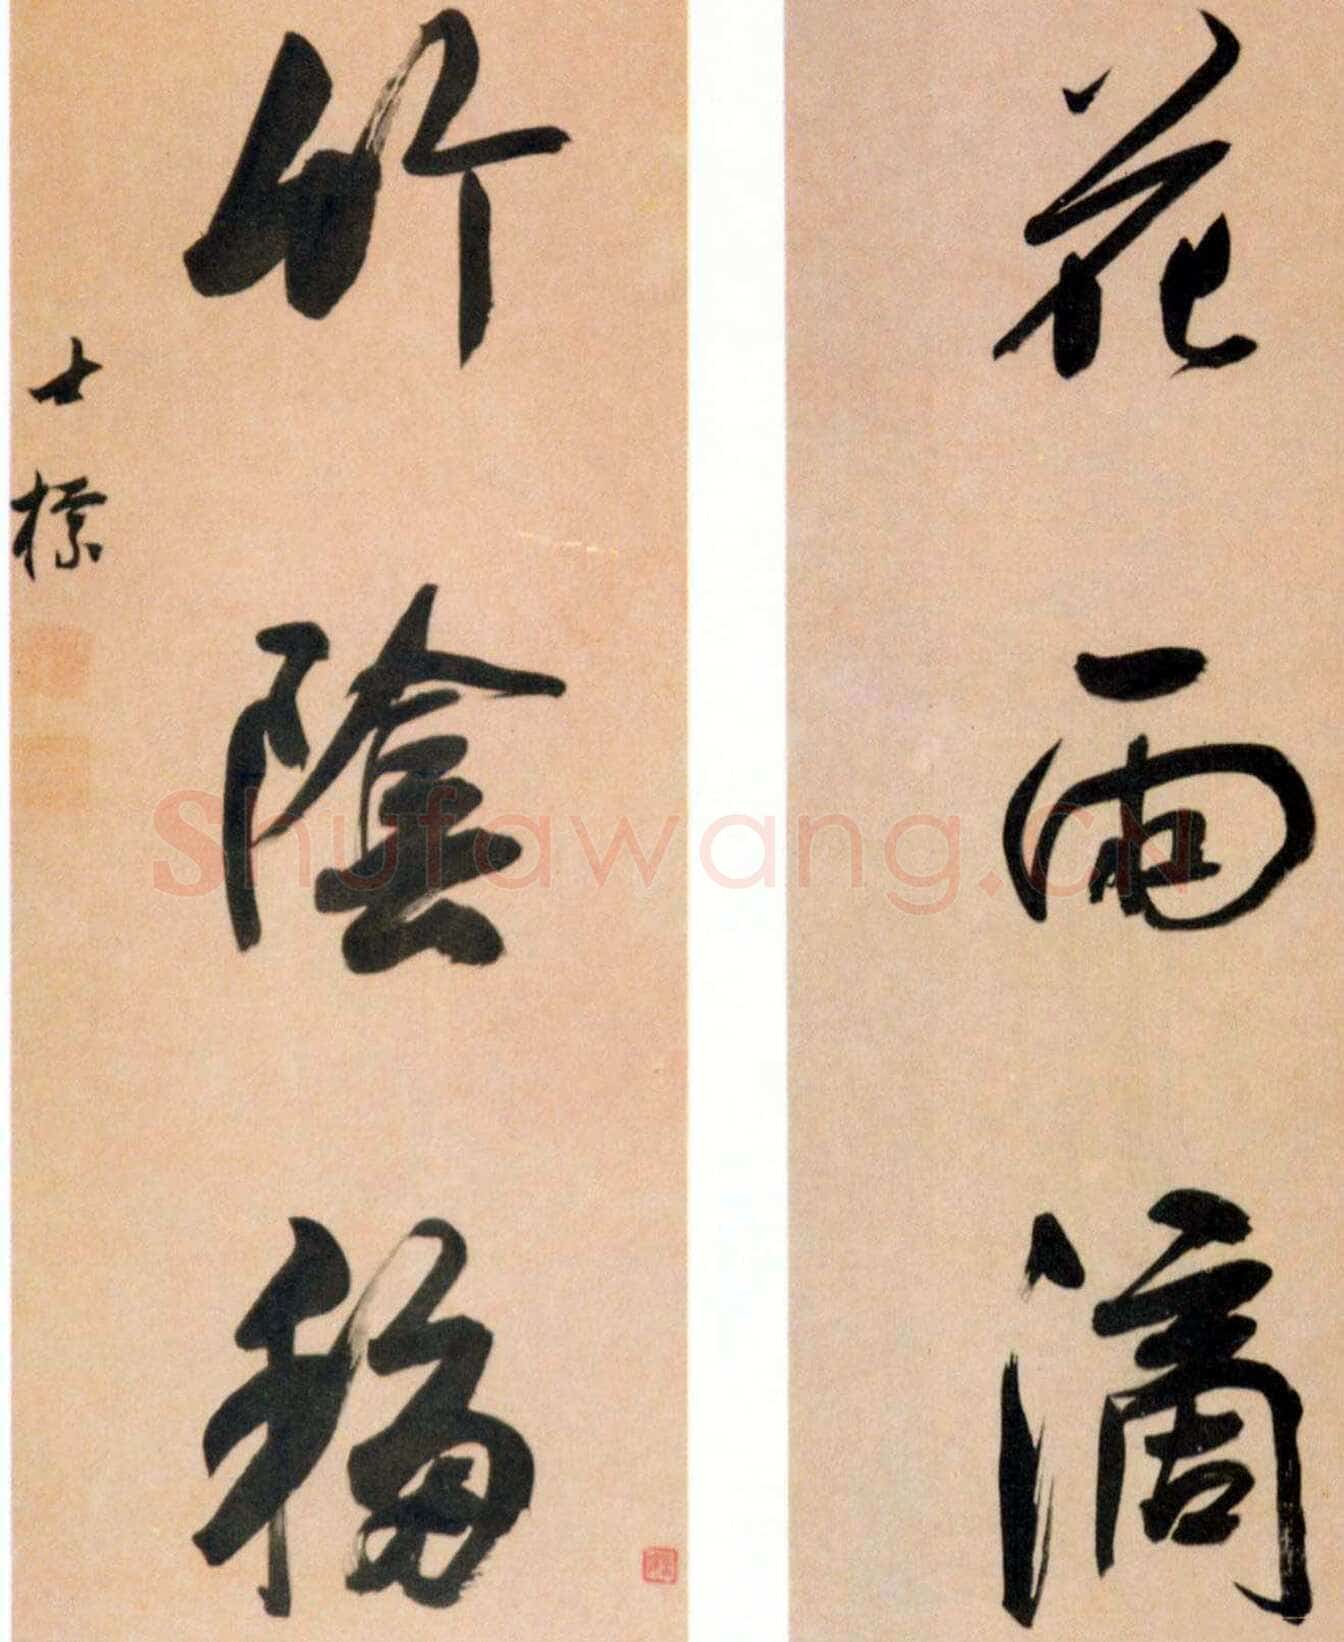 花雨滴
竹陰移
士標
Shufawang.cn